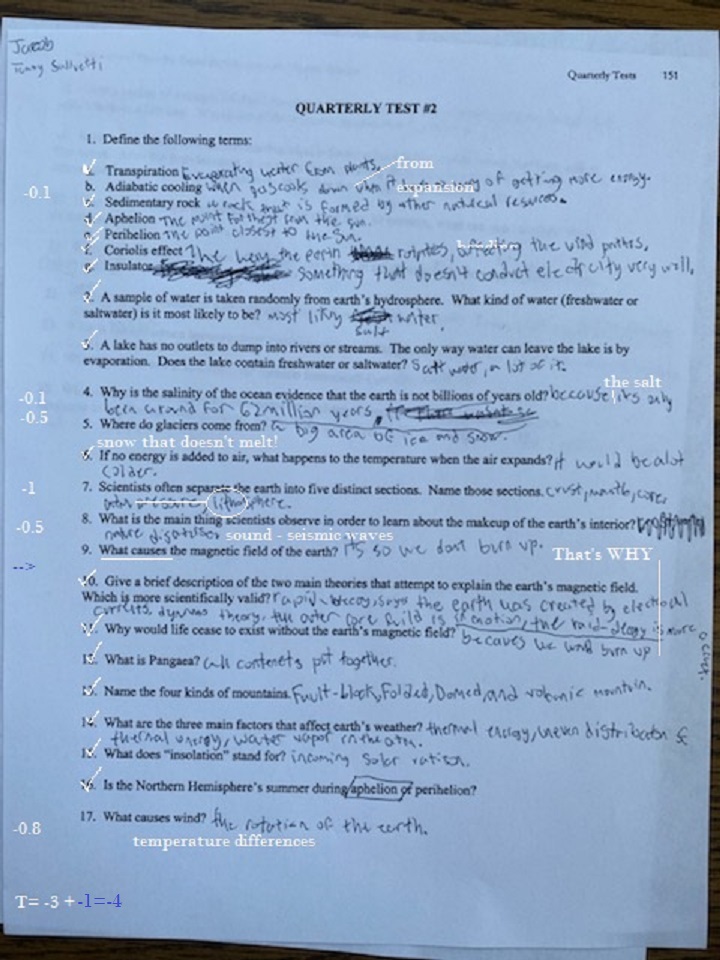 Jacob
Quarterly Tests 151
QUARTERLY TEST #2
1. Define the following terms:
a. Transpiration Evaporating water from plants. from
-0.1
b. Adiabatic cooling when gas cools down when it has no way of getting more energy. expansion
c. Sedimentary rock a rock that is formed by other natural resources.
d. Aphelion The point farthest from the sun.
e. Perihelion The point closest to the sun.
f. Coriolis effect The way the earth rotates, affecting the wind paths.
g. Insulator something that doesn't conduct electricity very well.
2. A sample of water is taken randomly from earth's hydrosphere. What kind of water (freshwater or
saltwater) is it most likely to be? most likly salt water.
3. A lake has no outlets to dump into rivers or streams. The only way water can leave the lake is by
evaporation. Does the lake contain freshwater or saltwater? Salt water, a lot of it.
the salt
-0.1
4. Why is the salinity of the ocean evidence that the earth is not billions of years old? because its only
been around for 62 million years.
-0.5
5. Where do glaciers come from? a big area of ice and snow.
snow that doesn't melt!
6. If no energy is added to air, what happens to the temperature when the air expands? it would be alot
colder.
-1
7. Scientists often separate the earth into five distinct sections. Name those sections. crust, mantle, core,
lithosphere.
-0.5
8. What is the main thing scientists observe in order to learn about the makeup of the earth's interior?
sound - seismic waves
9. What causes the magnetic field of the earth? its so we dont burn up. That's WHY
-->
10. Give a brief description of the two main theories that attempt to explain the earth's magnetic field.
Which is more scientifically valid? rapid-decay, says the earth was created by electrical
currents, dynamo theory, the outer core fluid is in motion, the raid-decay is more
11. Why would life cease to exist without the earth's magnetic field? becaues we would burn up
12. What is Pangaea? all contenets put together.
13. Name the four kinds of mountains. Fault-block, Folded, Domed, and volcanic mountain.
14. What are the three main factors that affect earth's weather? thermal energy, uneven distribution of
thermal energy, water vapor in the atm.
15. What does "insolation" stand for? incoming solar ration.
16. Is the Northern Hemisphere's summer during aphelion or perihelion?
-0.8
17. What causes wind? the rotation of the earth.
temperature differences
T= -3 + -1=-4